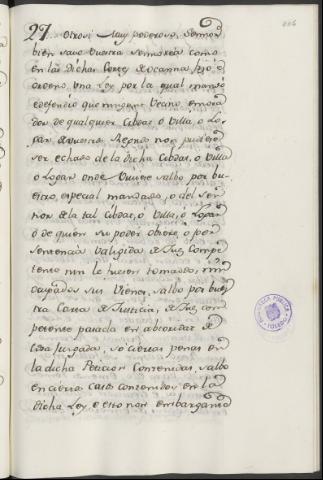 27. Otrosi Muy poderoso Sennor
bien save Vuestra Sennoria como
en las dichas Cortes de ocanna fizo
ordeno una Ley por la qual mandó
e defendió que ningun Vecino e mora
dor de qualquier Cibdat o Villa, o Lo
gar de vuestro Regnos non pudiese
ser echado de la dicha Cibdat, o Villa
o Logar onde Viviere salbo por bu
estro especial mandado, o del Sen
nor de la tal Cibdat, o Villa, o Logar
o de quien su poder obiere, o por
sentencia Valigida de Juez Compe
tente nin le fuesen tomados, nin
ocupados sus Vienes, salbo por bues
tra Carta de Justicia, o de Juez com
petente pasada en abtoridat de
Cosa Juzgada, só ciertas penas en
la dicha Peticion Contenidas, salbo
en ciertos casos contenidos en la
dicha Ley e esto non embargante
BIBLIOTECA PUBLICA
TOLEDO